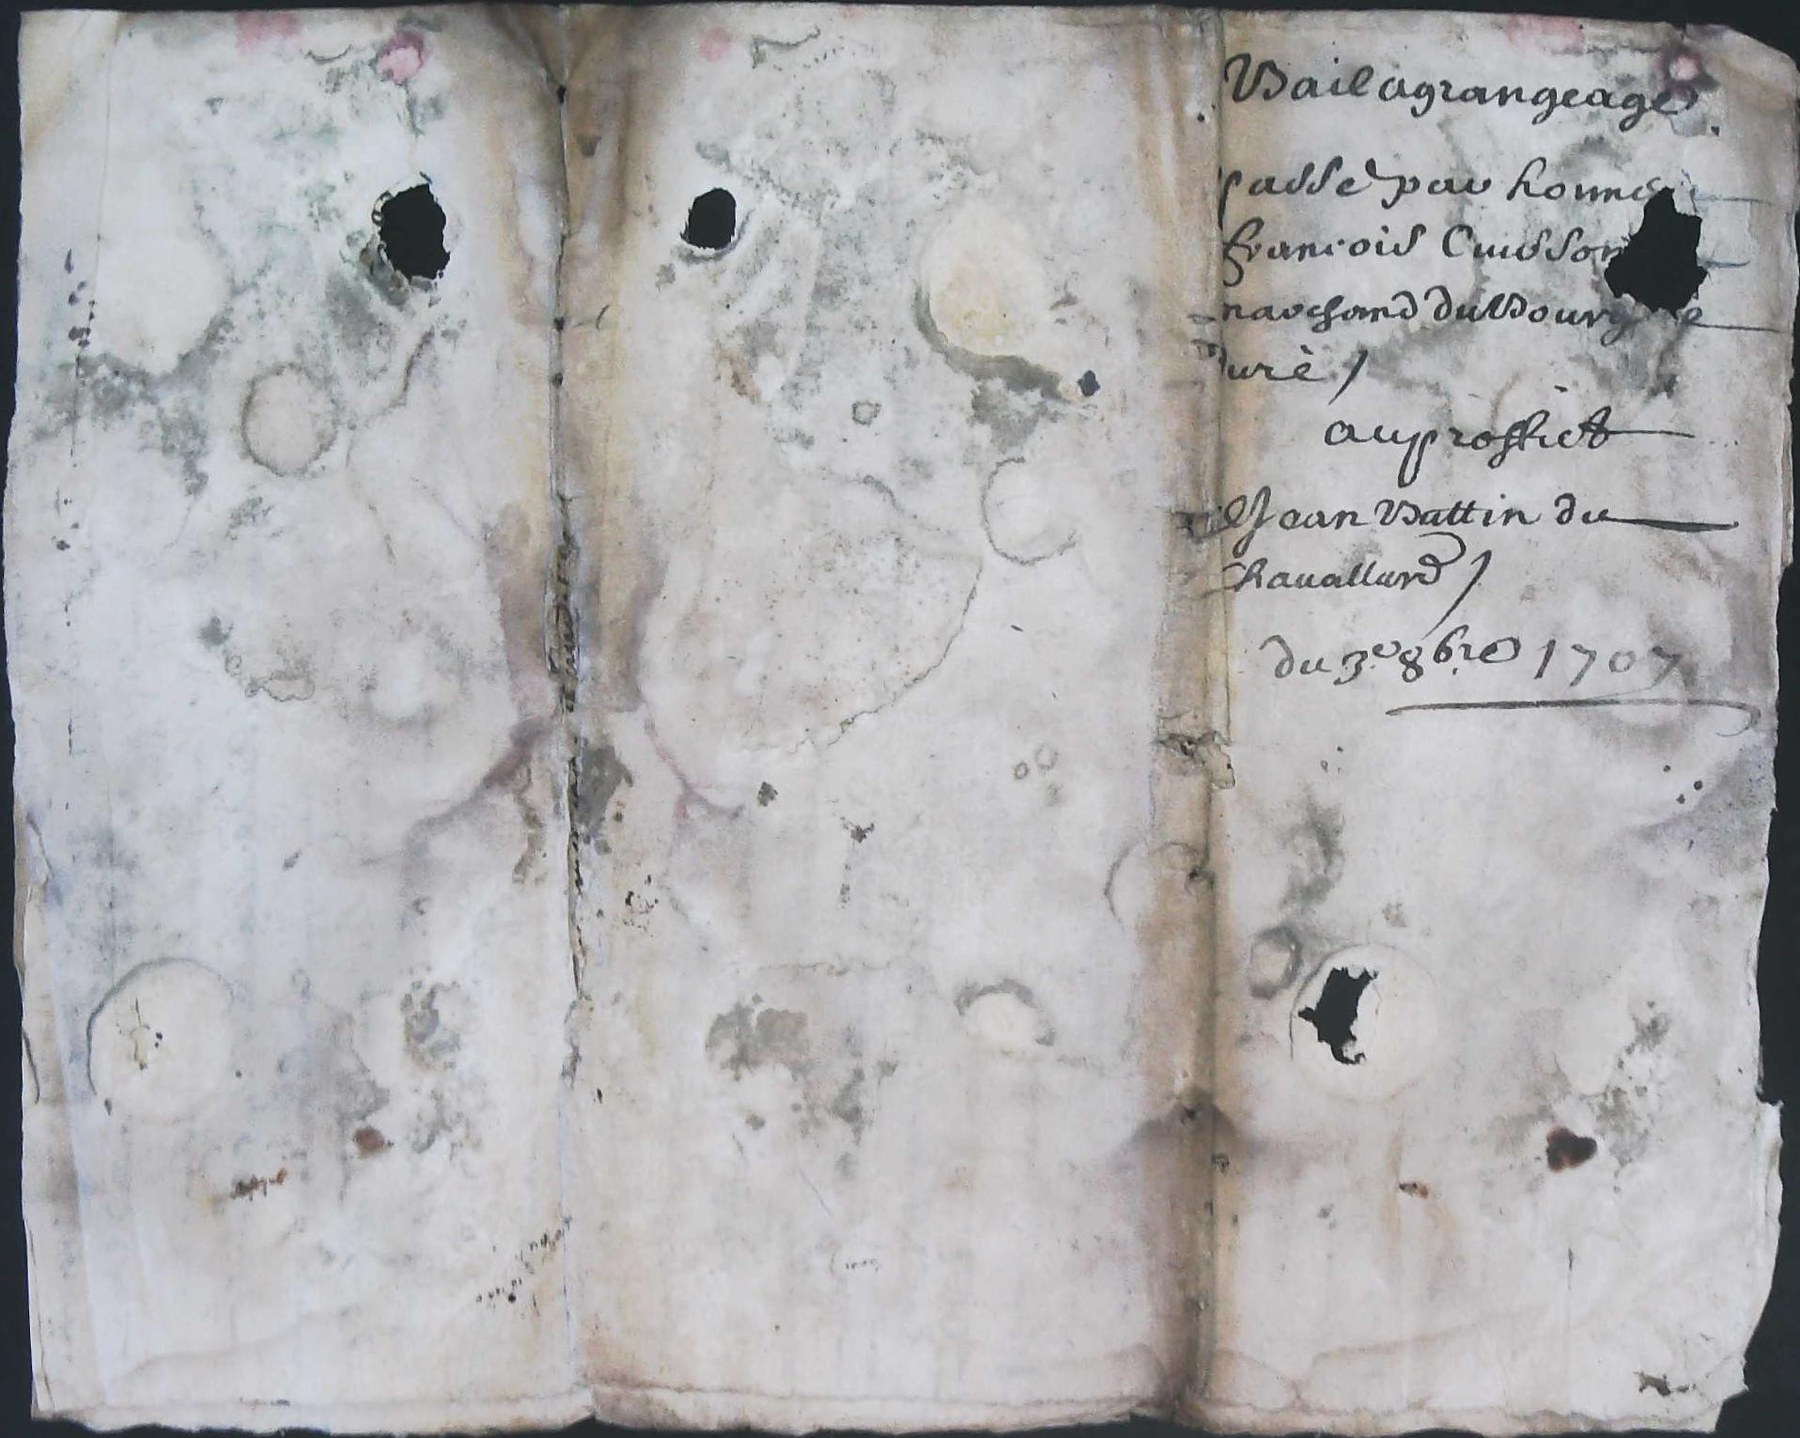 Bail agrangeage
passé par honne
françois Cuisson
marchand du Bourg
duré /
au proffict
Jean Battin du
Chauallard /
du 3e 8bre 1707